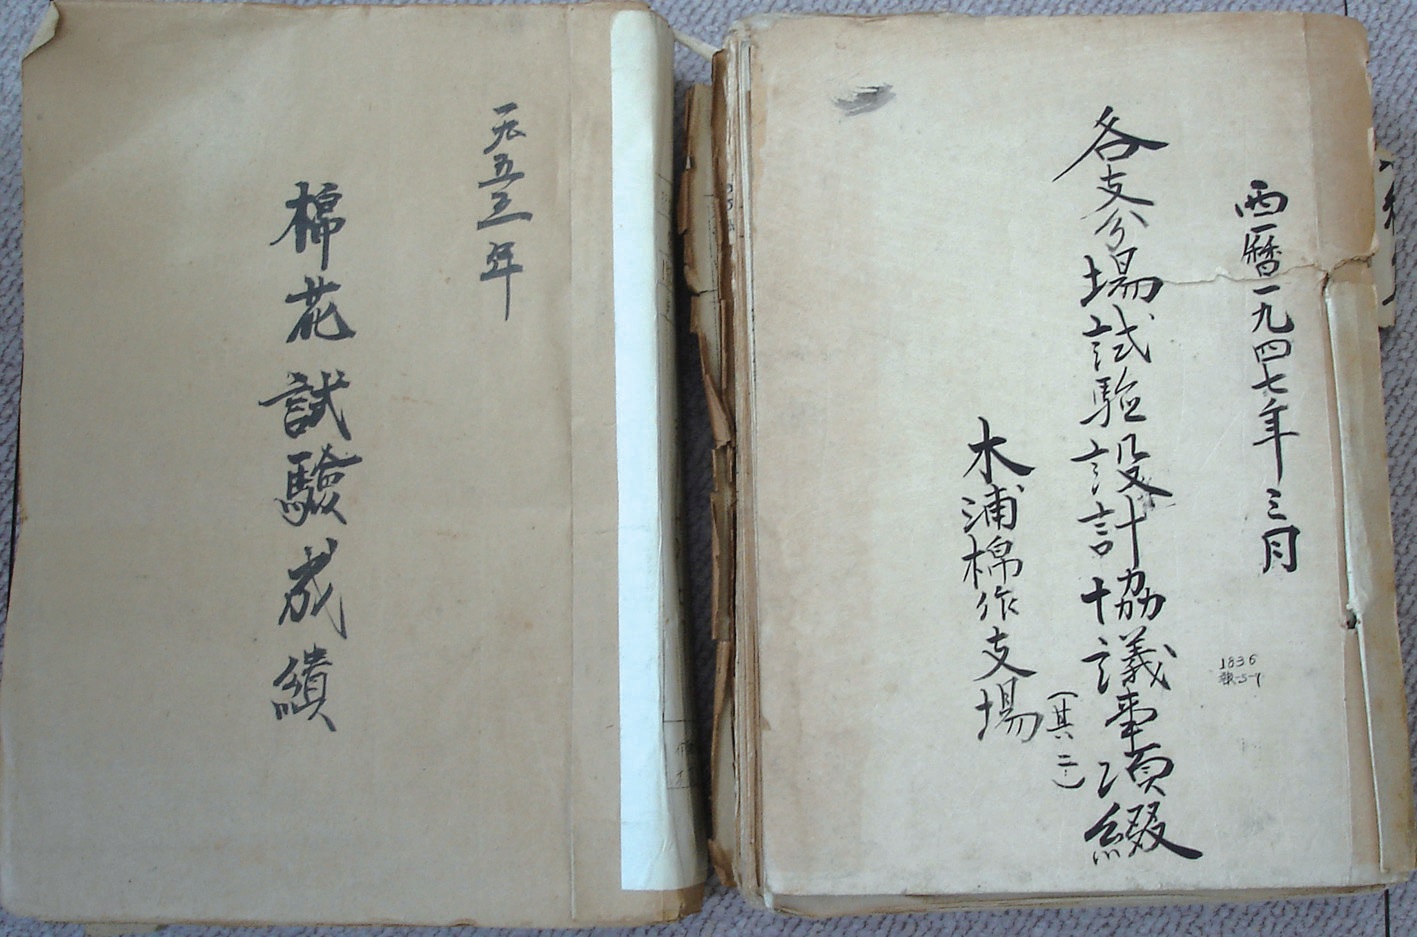 西曆一九四七年三月
各支分場試驗設計協議事項綴
(其二)
木浦棉作支場
1836
一九五三年
棉花試驗成績